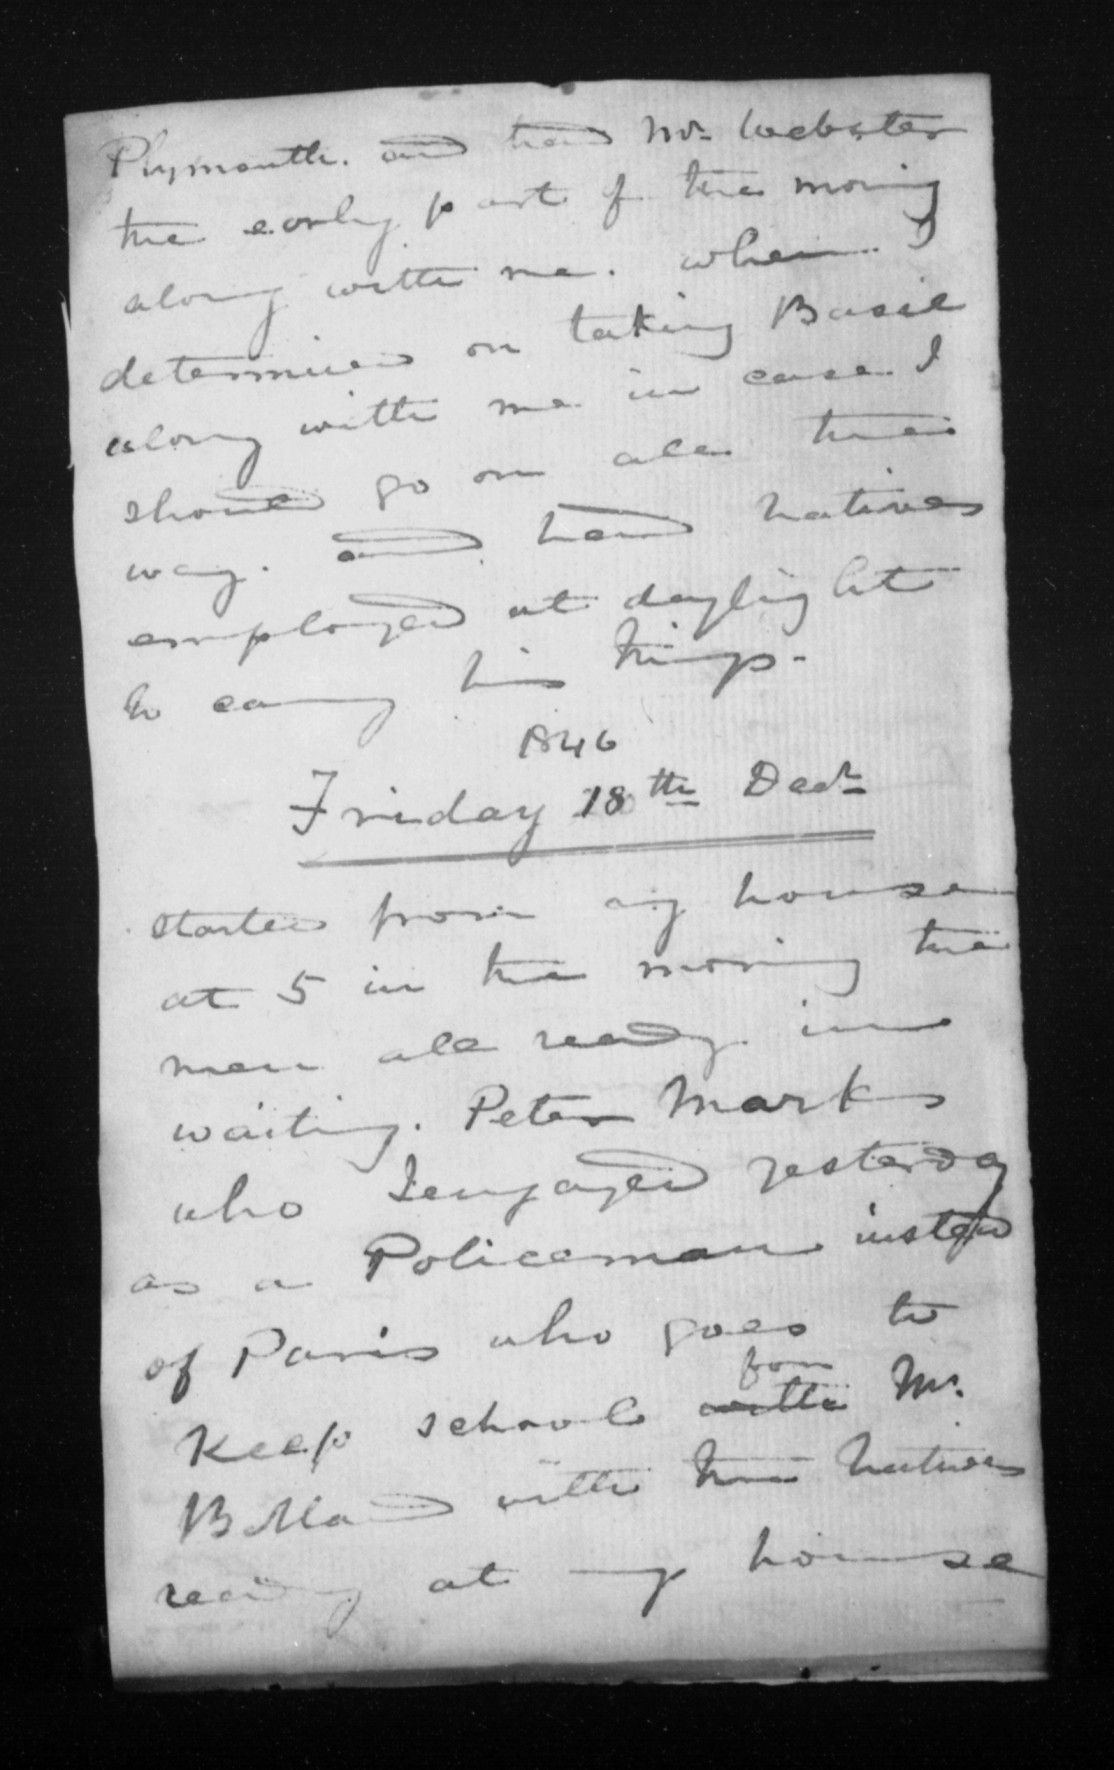 Plymouth. and had Mr. Webster
the early part of the morning
along with me. when I
determined on taking Basil
along with me in case I
should go on all the
way. and had natives
employed at daylight
to carry his things.
1846
Friday 18th Decr
started from my house
at 5 in the morning the
men all ready in
waiting. Peter Marks
who I engaged yesterday
as a Policeman instead
of Paris who goes to
Keep school with for Mr.
with the Natives
ready at my house